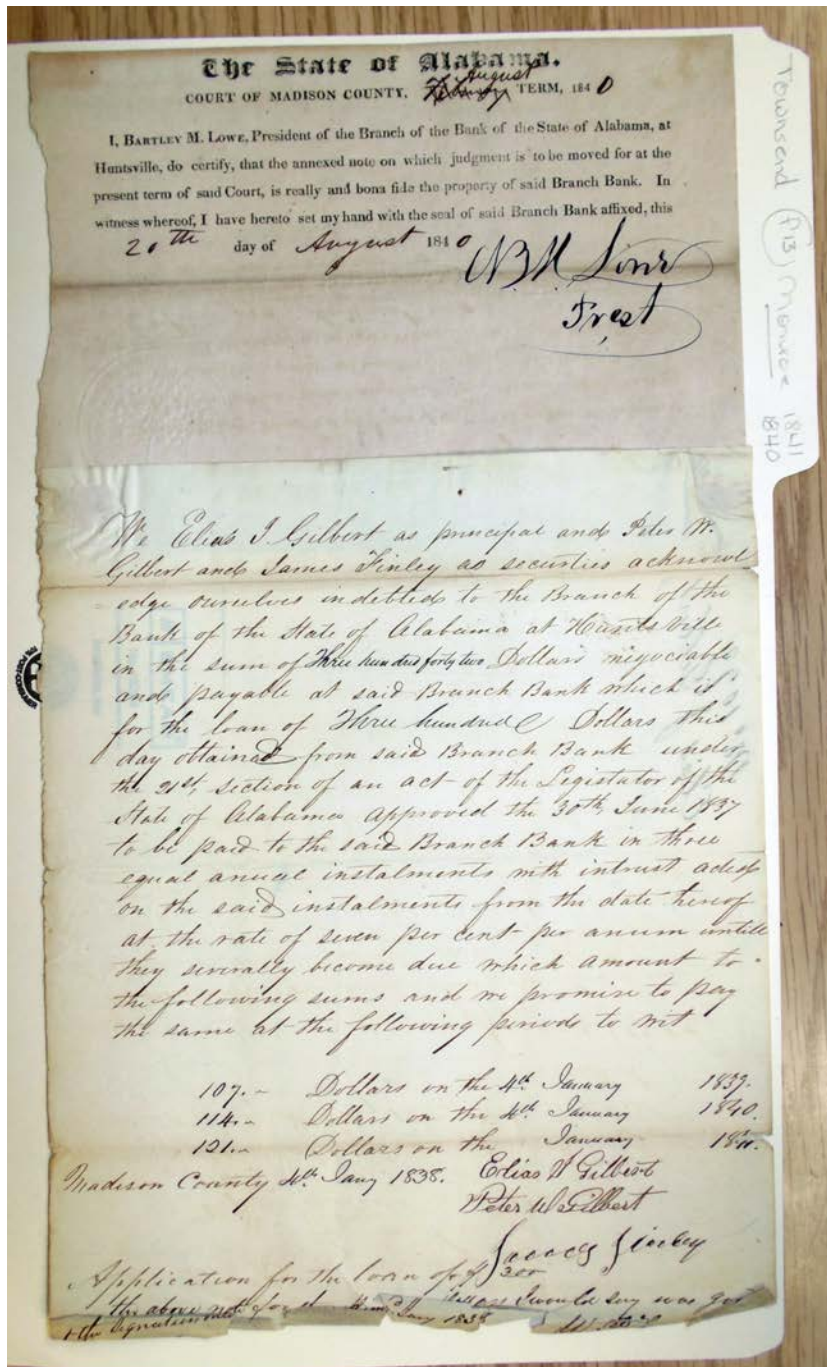 The State of Alabama.
August
COURT OF MADISON COUNTY, TERM, 1840
I, BARTLEY M. LOWE, President of the Branch of the Bank of the State of Alabama, at
Huntsville, do certify, that the annexed note on which judgment is to be moved for at the
present term of said Court, is really and bona fide the property of said Branch Bank. In
witness whereof, I have hereto set my hand with the seal of said Branch Bank affixed, this
20th day of August 1840
B M Lowe
Prest
We Elias J. Gilbert as principal and Peter W.
Gilbert and James Finley as securties acknowl
edge ourselves indebted to the Branch of the
Bank of the State of Alabama at Huntsville
in the sum of Three hundred forty two Dollars negociable
and payable at said Branch Bank which is
for the loan of Three hundred Dollars this
day obtained from said Branch Bank under
the 21st, section of an act of the Legistator of the
State of Alabama approved the 30th, June 1837
to be paid to the said Branch Bank in three
equal anual instalments with intrust aded
on the said instalments from the date hereof
at the rate of seven per cent per anum untill
they severally become due which amount to
the following sums and we promise to pay
the same at the following periods to wit
107.- Dollars on the 4th January 1839.
114.- Dollars on the 4th January 1840.
121.- Dollars on the January 1841.
Madison County 4th Jany 1838. Elias J Gilbert
Peter W Gilbert
James Finley
Application for the loan of $300
the above note I would say was got
& the signatures Jany 1838
Townsend (f13) Monroe 1841
1840